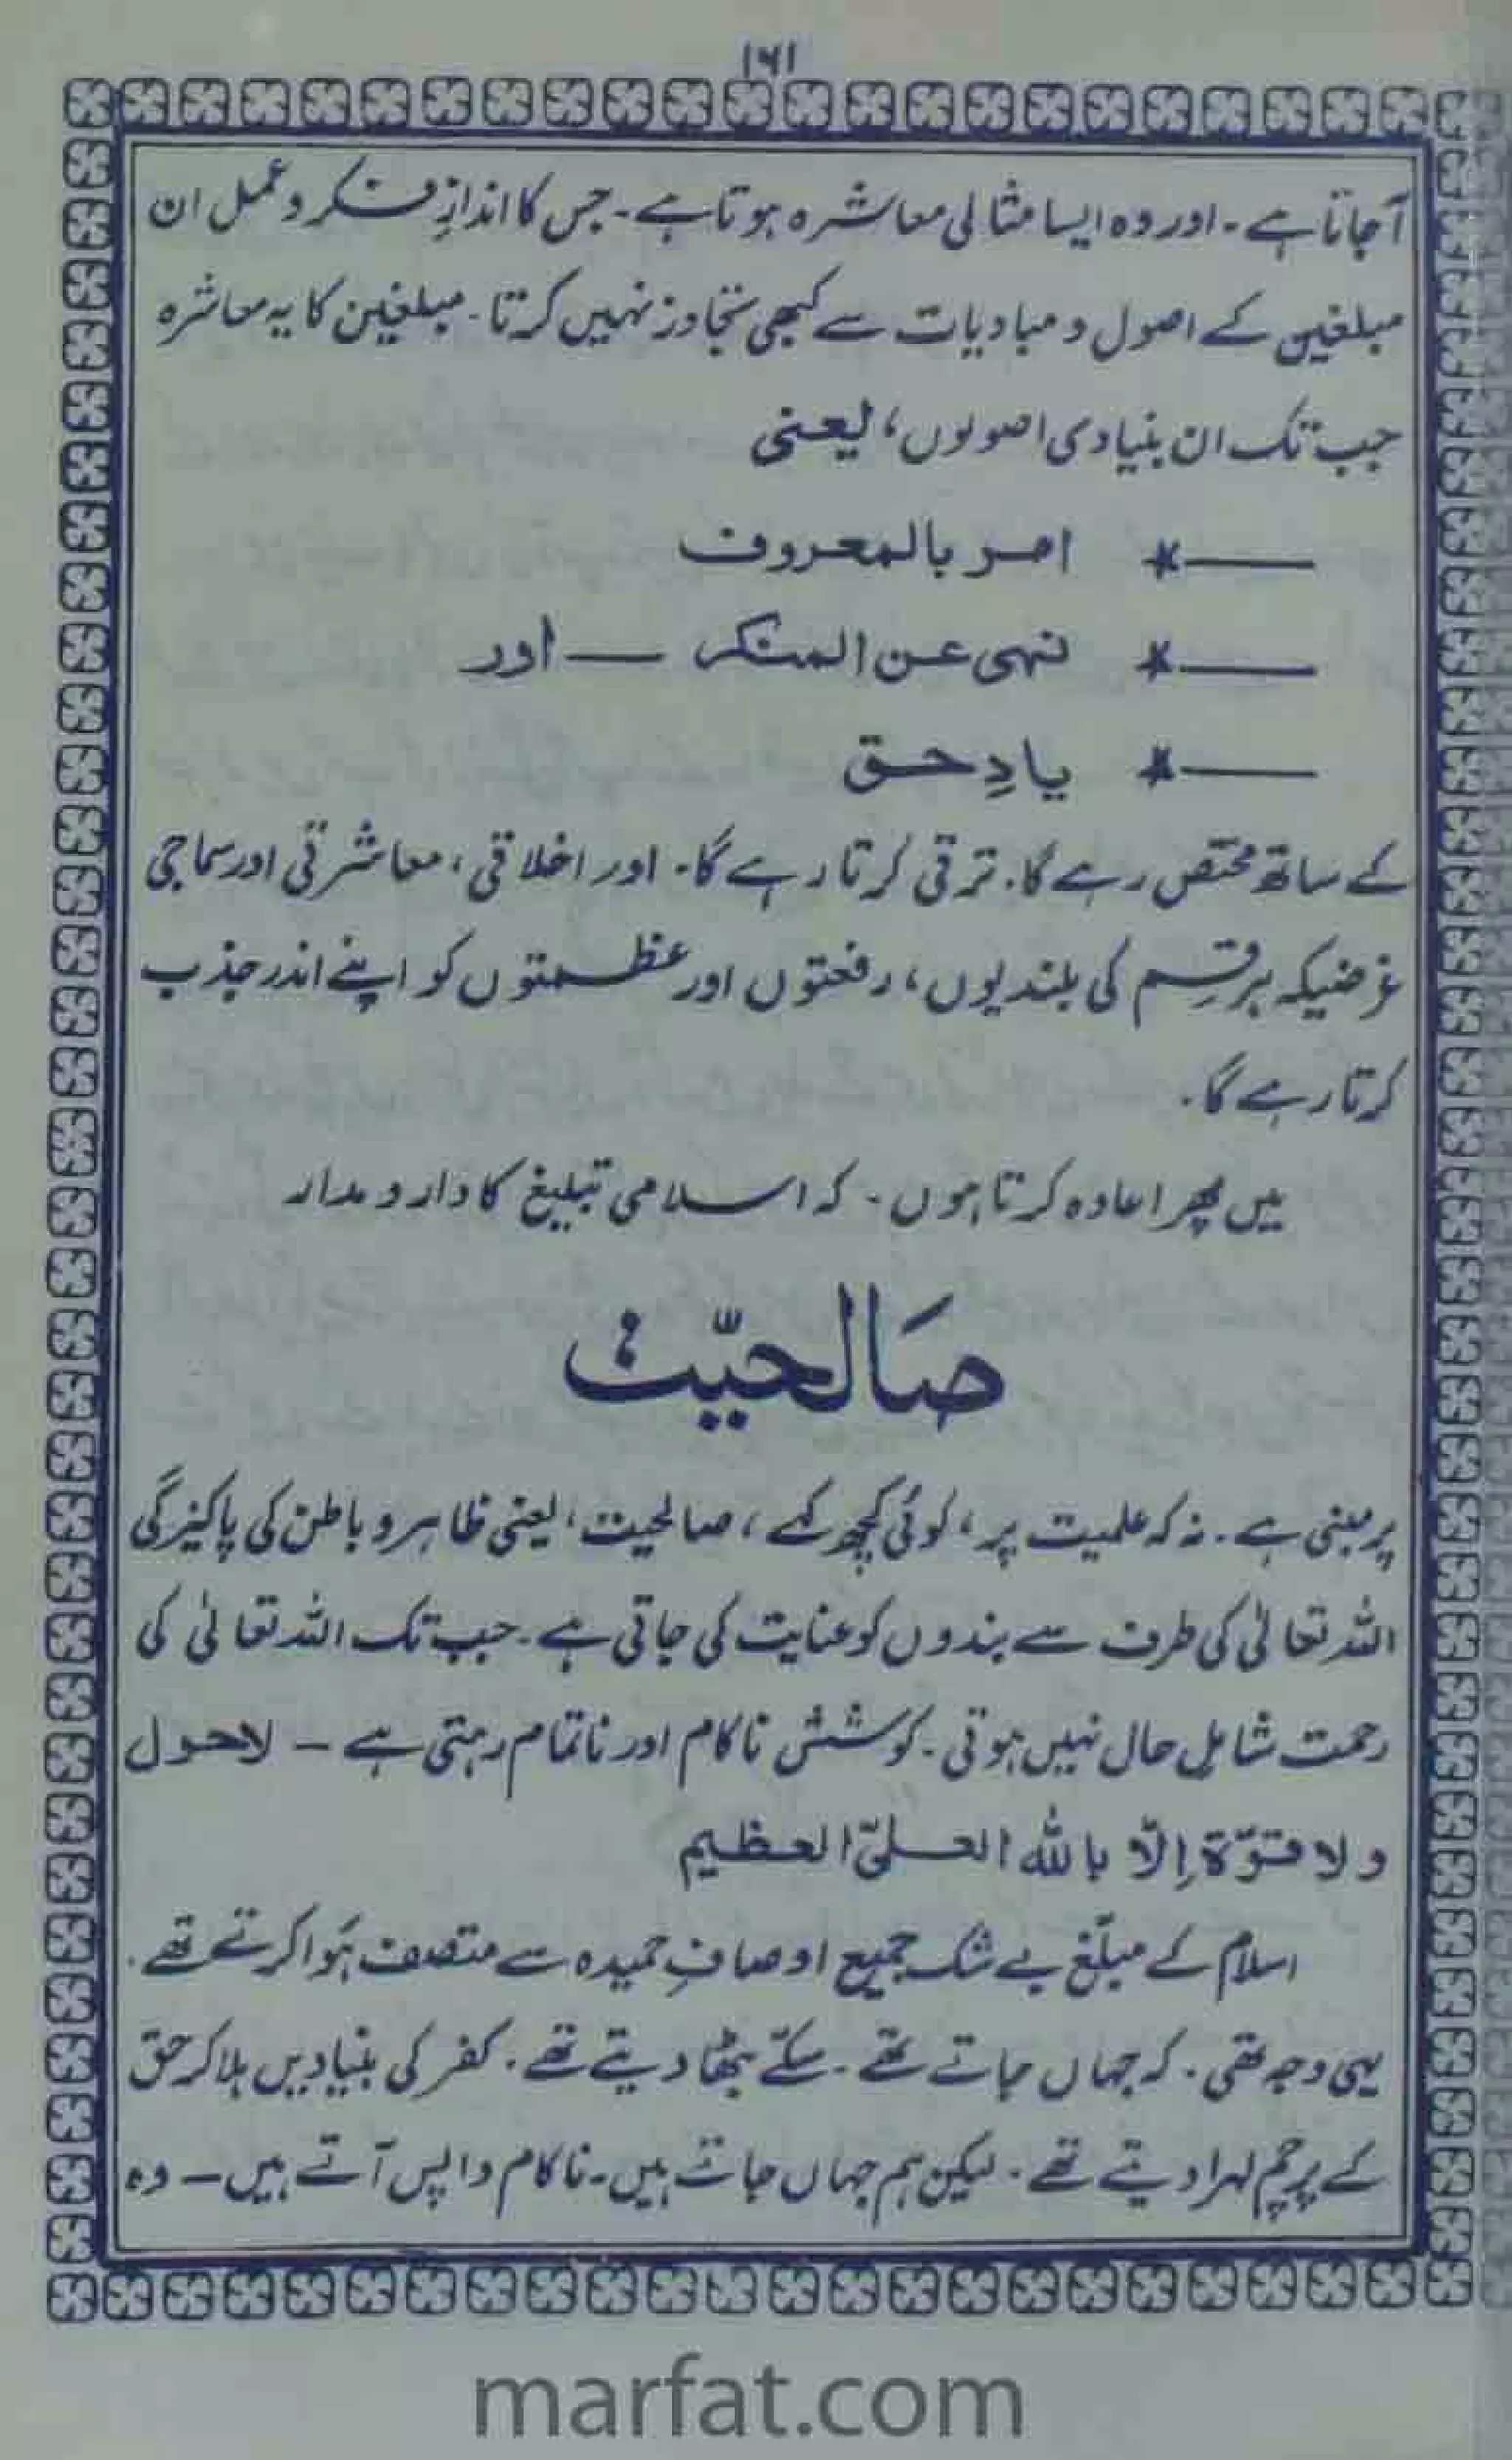 ۱۶۱
آجاتا ہے۔ اور وہ ایسا مثالی معاشرہ ہوتا ہے۔ جس کا اندازِ فکر و عمل ان
مبلغین کے اصول و مبادیات سے کبھی تجاوز نہیں کرتا۔ مبلغین کا یہ معاشرہ
جب تک ان بنیادی اصولوں، یعنی
——* امر بالمعروف
——* نہی عن المنکر — اور
——* یادِ حق
کے ساتھ مختص رہے گا۔ ترقی کرتا رہے گا۔ اور اخلاقی، معاشرتی اور سماجی
غرضیکہ ہر قسم کی بلندیوں، رفعتوں اور عظمتوں کو اپنے اندر جذب
کرتا رہے گا۔
میں پھر اعادہ کرتا ہوں۔ کہ اسلامی تبلیغ کا دار و مدار
صَالحیّت
پر مبنی ہے۔ نہ کہ علمیت پر، کوئی کچھ کہے، صالحیت، یعنی ظاہر و باطن کی پاکیزگی
اللہ تعالیٰ کی طرف سے بندوں کو عنایت کی جاتی ہے۔ جب تک اللہ تعالیٰ کی
رحمت شاملِ حال نہیں ہوتی۔ کوشش ناکام اور ناتمام رہتی ہے — لاحول
ولا قوّة اِلّا باللہ العلیّ العظیم
اسلام کے مبلّغ بے شک جمیع اوصافِ حمیدہ سے متصف ہوا کرتے تھے۔
یہی وجہ تھی۔ کہ جہاں جاتے تھے۔ سکّے بٹھا دیتے تھے۔ کفر کی بنیادیں ہلا کر حق
کے پرچم لہرا دیتے تھے۔ لیکن ہم جہاں جاتے ہیں۔ ناکام واپس آتے ہیں — وہ
marfat.com